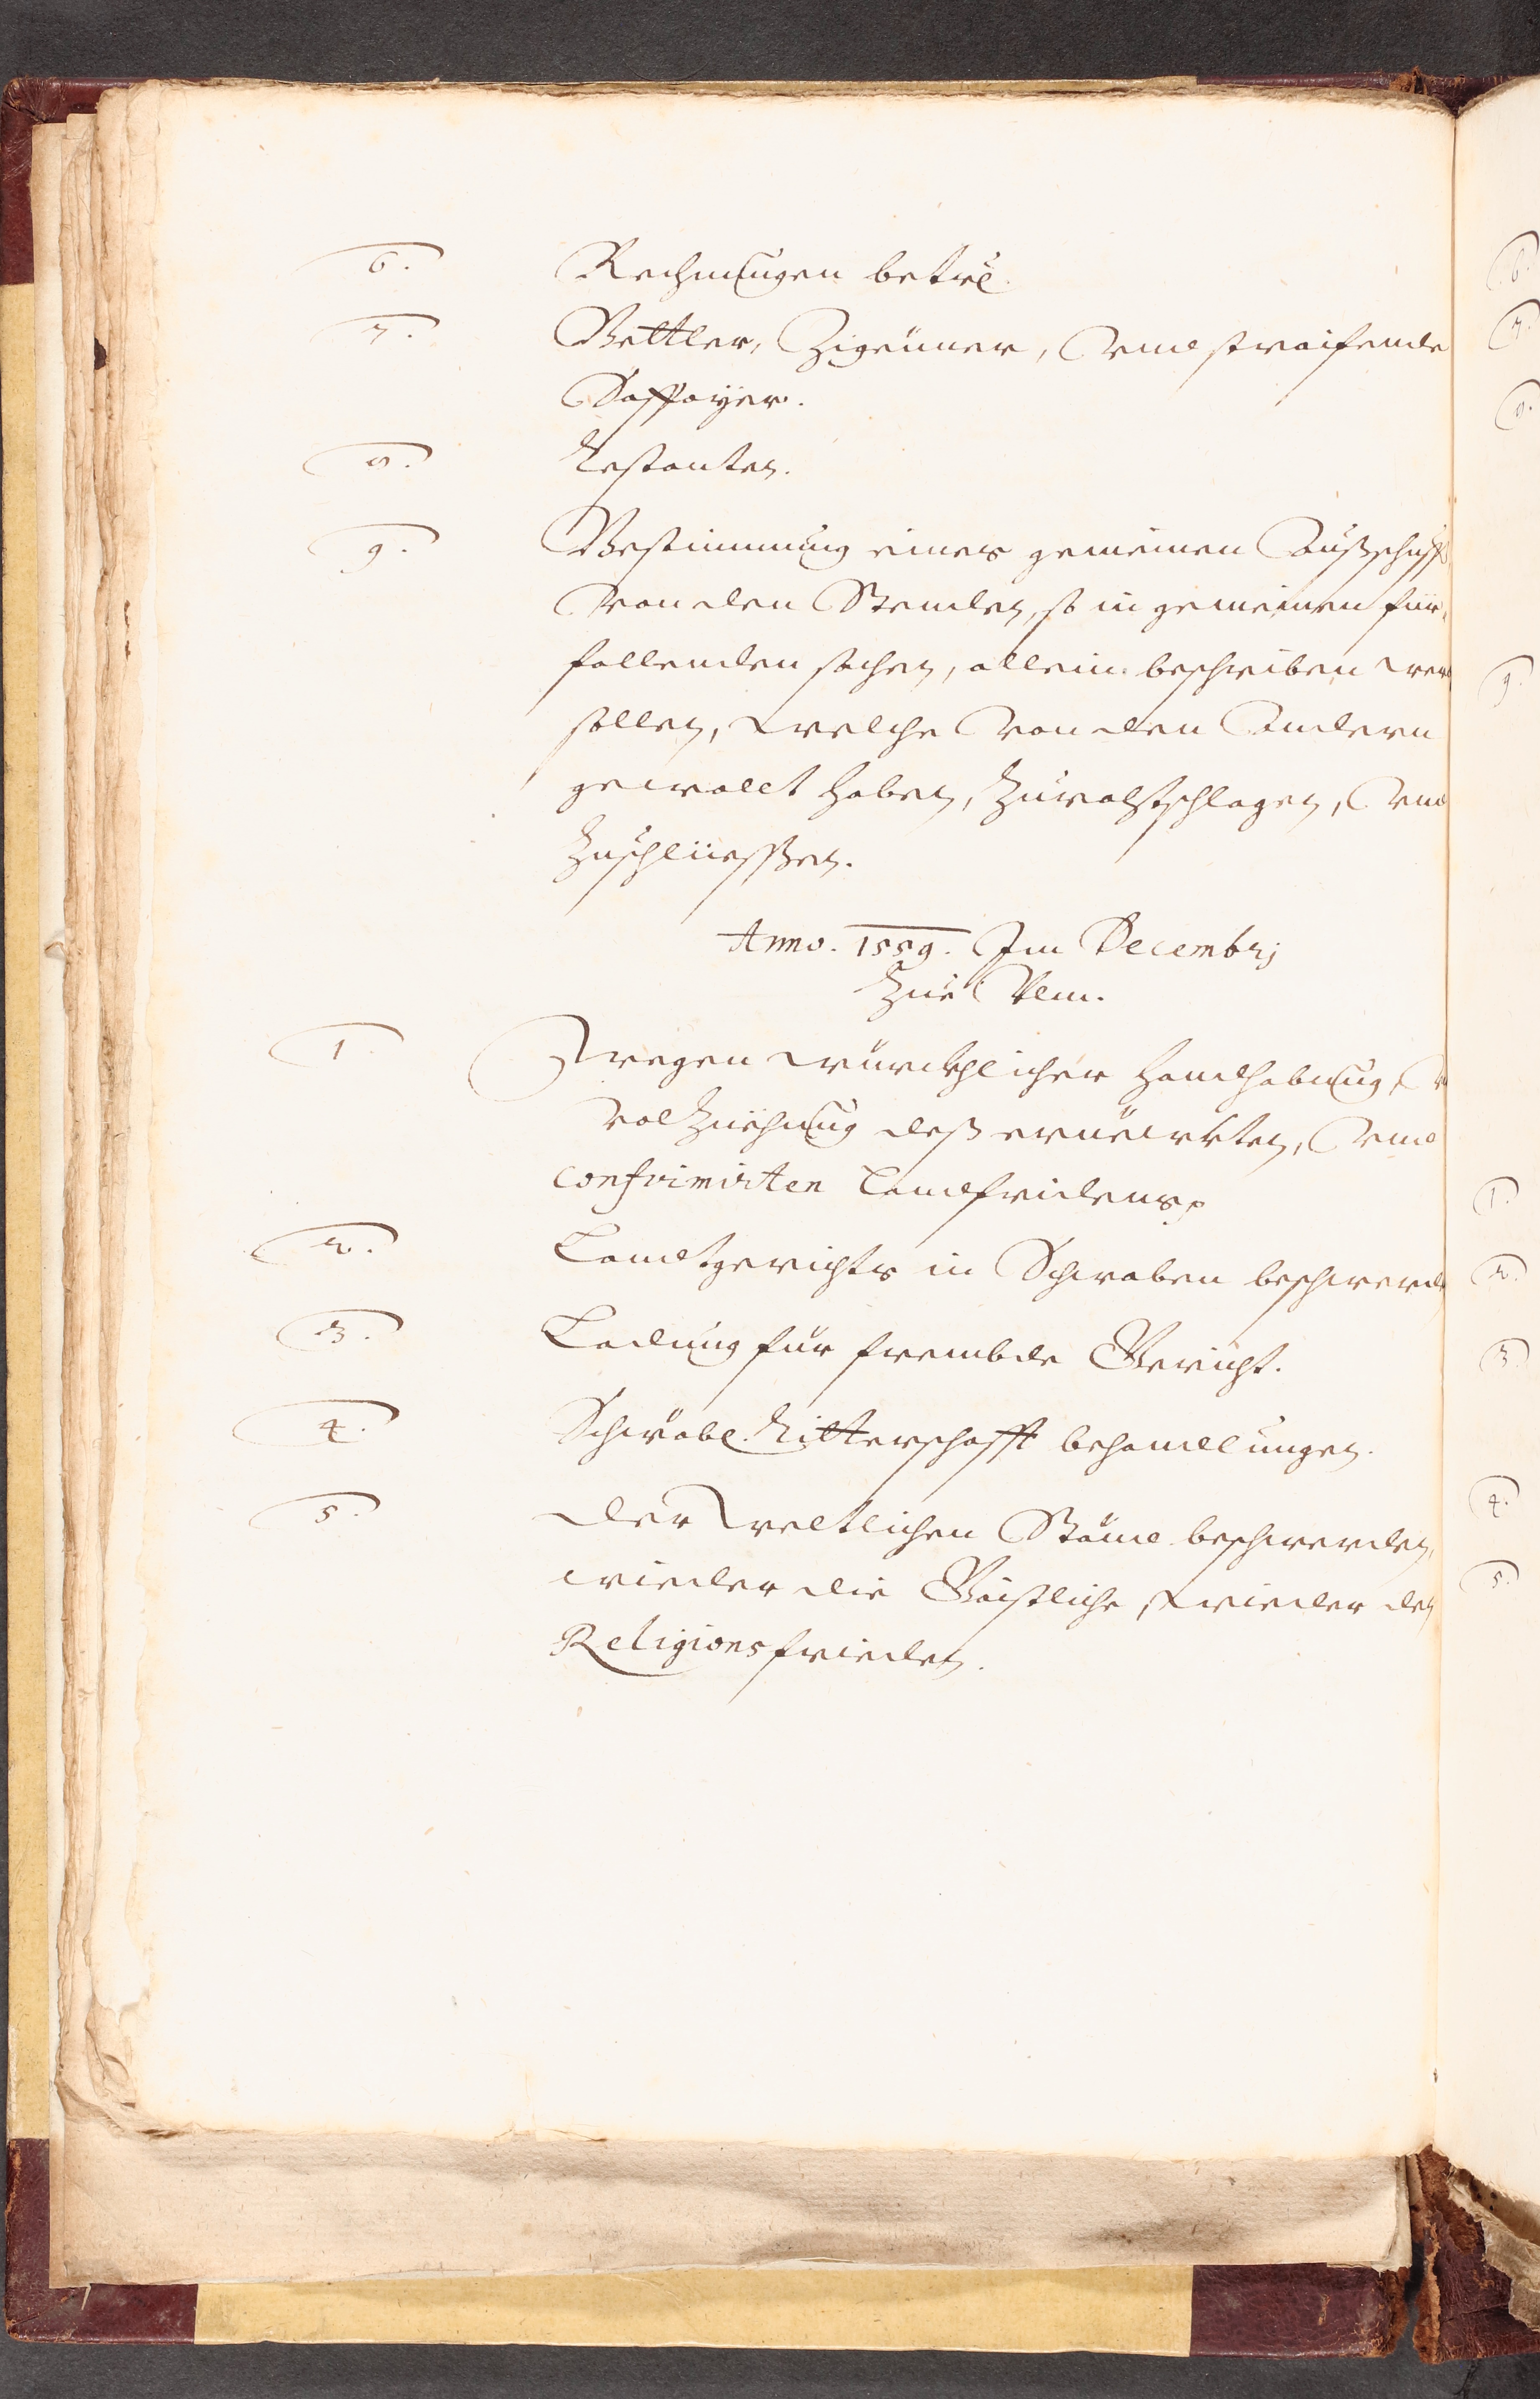 6. Rechnungen betrl.
7. Bettler, Zigeüner, vnd straifende
Saffoyer.
8. Restanten.
9. Bestimmung eines gemeinen Außschuss
von den Stenden, so in gemeinen für„
fallenden sachen, allein beschriben wer
sollen, welche von den Andern
gewallt haben, Zurathschlagen, vnd
Zuschliessen.
Anno. 1559. Im Decembrj
Zue Vlm.
1. Wegen würckhlicher Handhabung,
volZiehung deß ernüerten, vnd
confirmirten Landfridens,
2. Landtgerichts in Schwaben beschwerd
3. Ladung für frembde Gericht.
4. Schwäbl. Ritterschafft behandlungen.
5. Der Weltlichen Ständ beschwerden,
wieder die Gaistliche, wieder den
Religionsfrieden.
6.
7.
9.
1.
2.
3.
4.
5.